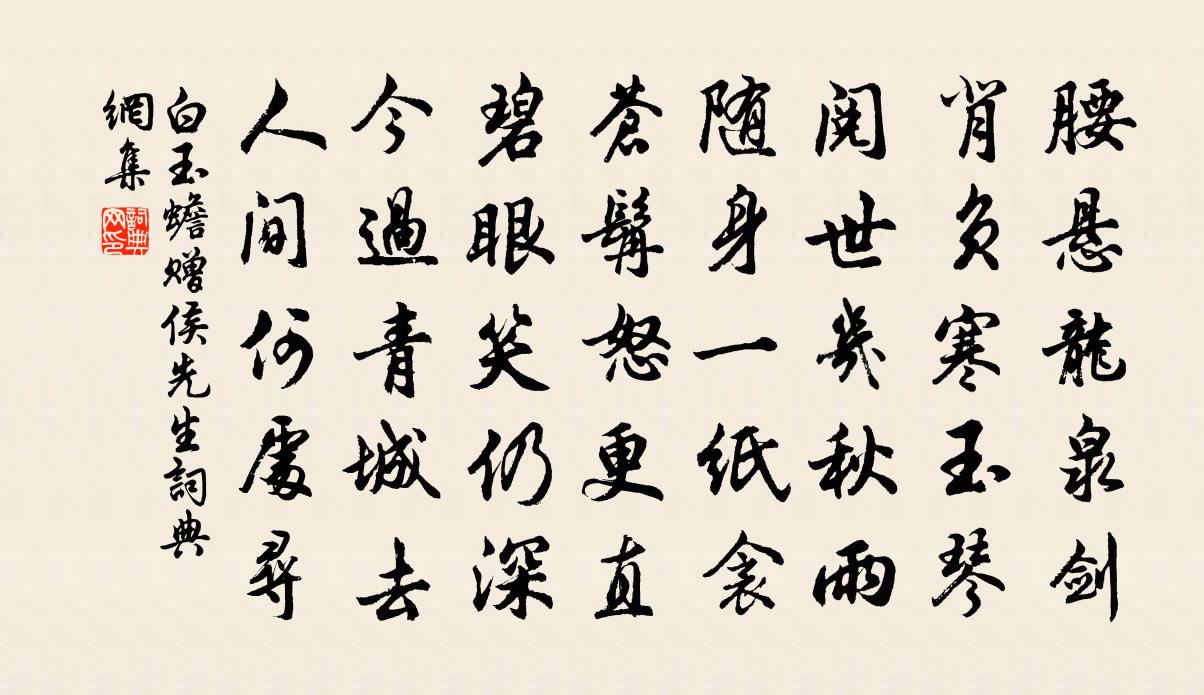 腰悬龍泉剑
背负寒玉琴
阅世幾秋雨
随身一纸衾
蒼髯怒更直
碧眼笑仍深
今過青城去
人间何處尋
白玉蟾赠侯先生詞典
網集
詞典网印